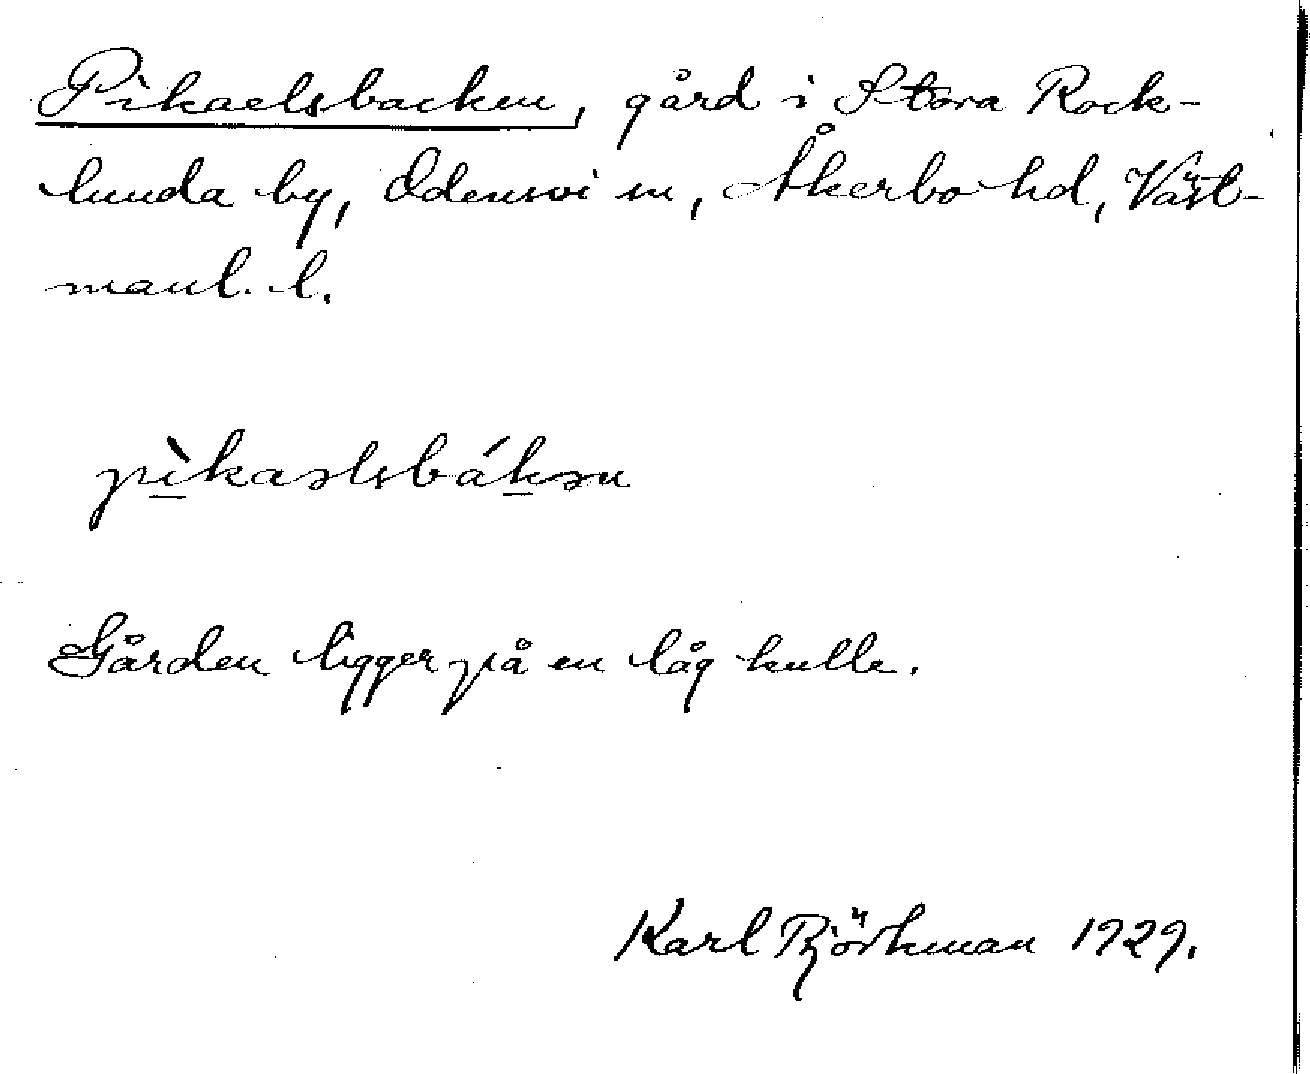 Pikaelsbacken, gård i Stora Rock-
lunda by, Odensvi sn, Åkerbo hd, Väst-
manl. l.
pì̲kaəlsbák̲ən
Gården ligger på en låg kulle.
Karl Björkman 1929.